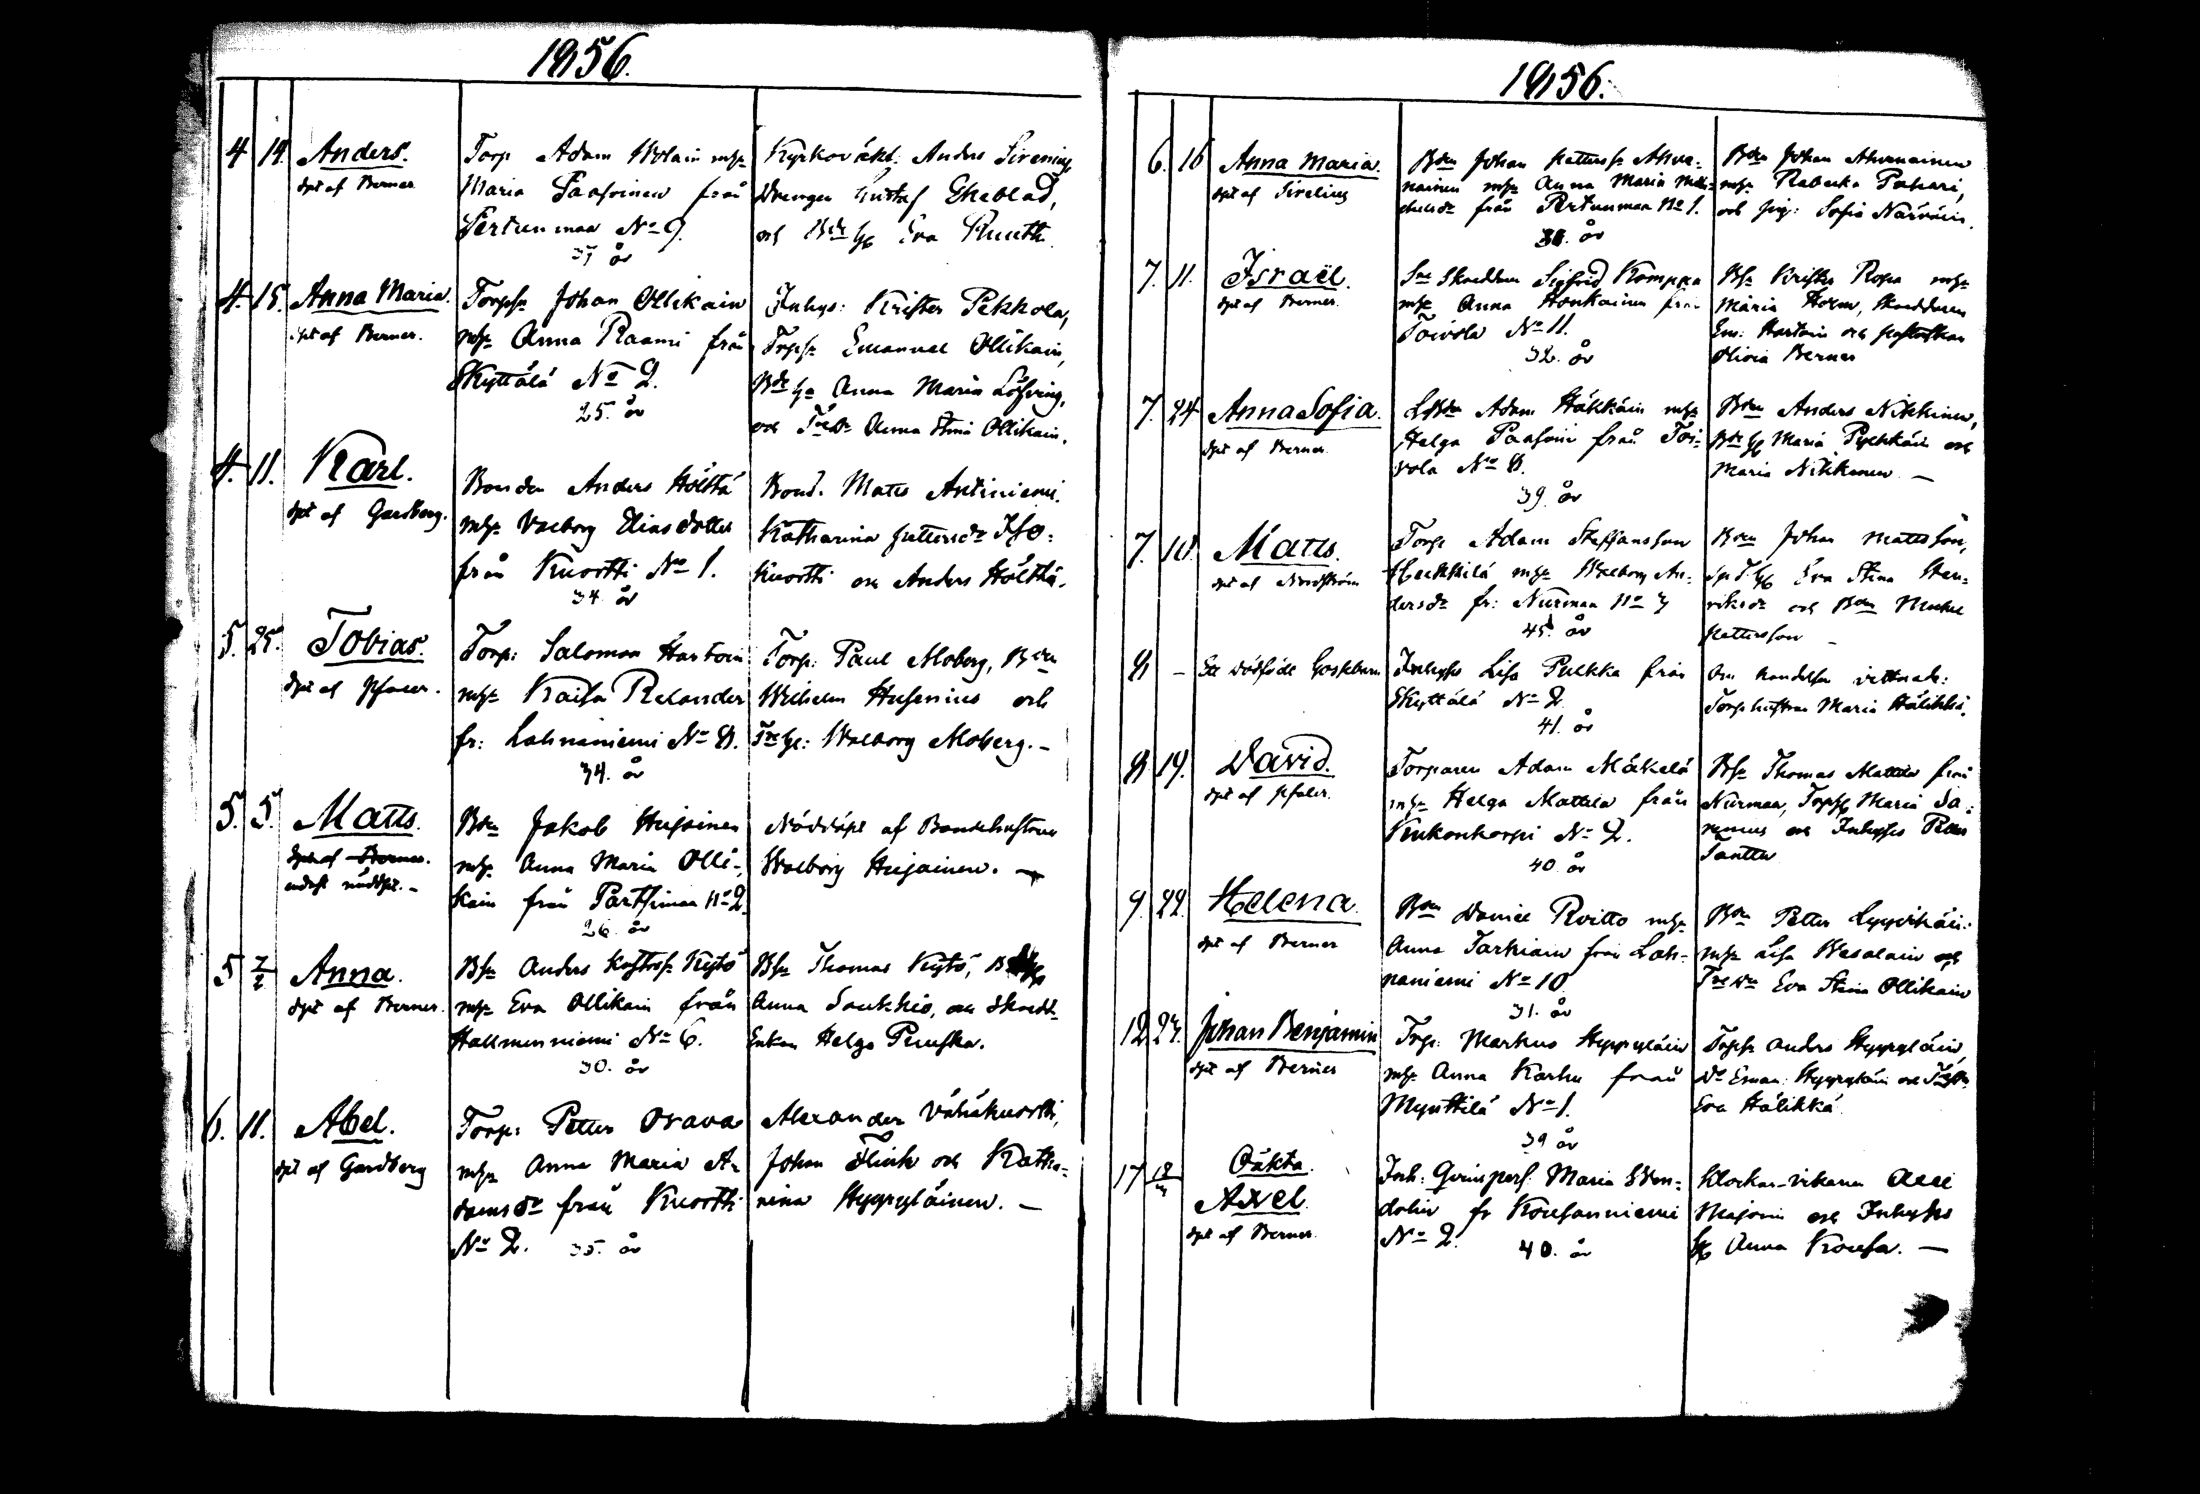 1856.
4 19. Anders.
döpt af Berner
Torp Adam Wolain mhu
Maria Paasoinen från
Pertunmaa No 9.
37 år
Kyrkoväkt. Anders Sirenius,
Drengen Gustaf Ekeblad,
och Bde h Eva Ruuth
4. 15. Anna Maria.
döpt af Berner.
Torps. Johan Ollikain
mhu Anna Raami från
Skyttälä No 2.
25. år
Inhys: Krister Pekkola,
Trps. Emanuel Ollikain,
Bde hu Anna Maria Löfving,
och Tre Dr Anna Stina Ollikain.
4. 11. Karl.
döpt af Gardberg.
Bonden Anders Hölttä
mhu Valborg Eliasdotter
från Kuortti No 1.
34. år
Bond. Matts Antiniemi.
Katharina Pettersdr Iso-
kuortti och Anders Hölttä.
5. 25. Tobias.
döpt af Pfaler.
Torp: Salomon Hartoin
mhu Kaisa Relander
fr: Lahnaniemi No 8.
34. år
Torp: Paul Moberg, Bden
Wilhelm Husenius och
Tre h: Walborg Moberg.-
5. 5. Matts.
döpt af Berner.
endast nöddöpt.-
Bdn Jakob Hujainen
mhu Anna Maria Olli-
kain från Parthimaa No 2
26. år
Nöddöpt af Bondehustrun
Walborg Hujainen. -
5 7/2 Anna.
döpt af Berner.
Bs. Anders Kytö
mhu Eva Ollikain från
Hallmenniemi No 6.
30. år
Bs. Thomas Kytö,
Anna Soukkio, och Skredd.
Enkan Helga Peruska.
6. 11. Abel.
döpt af Gardberg
Torp: Petter Orava
mhu Anna Maria A-
damsdr från Kuortti
No 2. 35. år
Alexander Vähäkuortti,
Johan Flink och Katha-
rina Hyyryläinen. -
1856.
6. 16 Anna Maria.
döpt af Sirelius
Bden Johan Petterss. Ahva-
nainen mhu Anna Maria Mi-
chelsdr från Pertunmaa No 1.
38. år
Bden Johan Ahvanainen
mhu Rebecka Pahari,
och pig: Sofia Närväin.
7. 11. Israël.
döpt af Berner.
Skreddaren Sigfrid Komppa
mhu Anna Honkainen från
Toivola No 11.
32. år
Bs. Krister Ropa mhu
Maria Horm, Skreddaren
Em: Hartoin och
Olivia Berner
7. 24 Anna Sofia.
döpt af Berner.
Adam Häkkäin mhu
Helga Paasoin från Toi-
vola No 8.
39. år
Bden Anders Nikkinen,
Bde h Maria Pylkkäin och
Maria Nikkinen. -
7. 10. Matts.
döpt af Nordström
Torp Adam Staffansson
Heikkilä mhu Walborg An-
dersdr fr: Nurmaa No 3
45. år
Bden Johan Mattsson,
Eva Stina Hen-
riksdr och Bden Michel
Pettersson -
8 - Ett dödfödt Gossebarn
Inhyses Lisa Pulkka från
Skyttälä No 2
41. år
Om händelsen vittnade:
Torp hustrun Maria Hälikkä.
8 19. David.
döpt af Pfaler.
Torparen Adam Mäkelä
mhu Helga Mattila från
Kukonkorpi No 2.
40. år
Bs. Thomas Mattila från
Nurmaa, Maria Sa-
renius och Inhyses
Tanttu
9. 22. Helena.
döpt af Berner
Bden Daniel Roitto mhu
Anna Tarkiain från Lah-
naniemi No 10
31. år
Bden Petter Lyyvikäin
mhu Lisa Wesalain och
Tre Dr Eva Stina Ollikain
12 23. Johan Benjamin
döpt af Berner
Trp: Markus Hyyryläin
mhu Anna Karhu från
Mynttilä No 1.
39 år
Trps. Anders Hyyryläin,
Do Eman. Hyyryläin och
Eva Hälikkä.
17 Oäkta.
Axel.
döpt af Berner.
Inh: Qvinspers. Maria Wen-
dolin fr Koufanniemi
No 2. 40. år
Klockar-vikarien
Majorin och Inhyses
h Anna Kousa. -